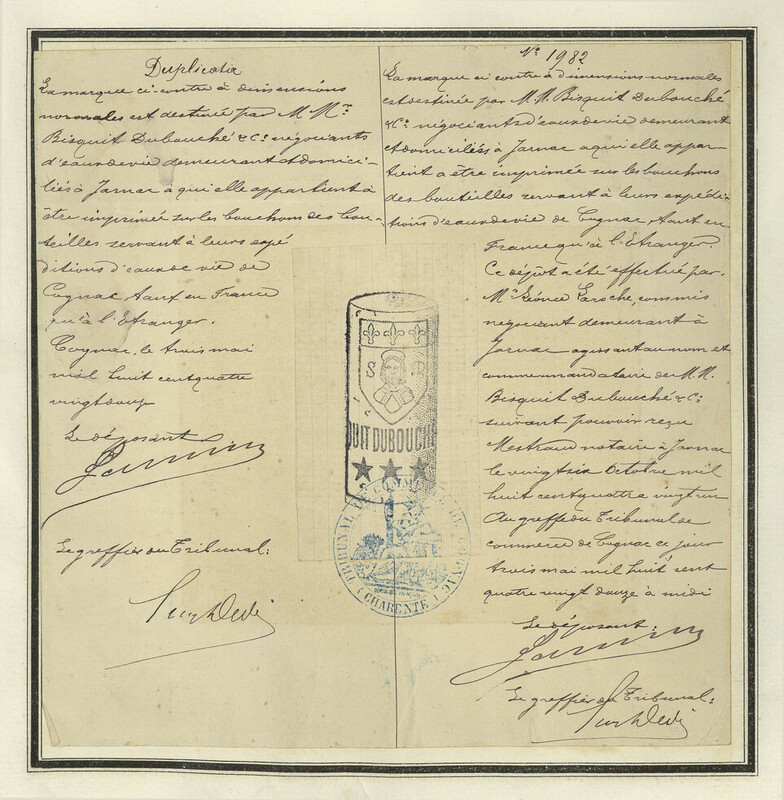 Duplicata
La marque ci-contre à dimensions
normales est destinée par M Mrs
Bisquit Dubouché & Cie négociants
d'eaux de vie demeurant et domici-
liés à Jarnac à qui elle appartient à
être imprimée sur les bouchons des bou-
teilles servant à leurs expé
ditions d'eaux de vie de
Cognac tant en France
qu'à l'Etranger.
Cognac, le trois mai
mil huit cent quatre
vingt douze
Le déposant
Le greffier du Tribunal:
S R
UIT DUBOUCHÉ
TRIBUNAL DE COMMERCE DE COGNAC
(CHARENTE)
No 1982
La marque ci contre à dimensions normales
est destinée par M.M. Bisquit Dubouché
& Cie négociants d'eaux de vie demeurant
et domiciliés à Jarnac a qui elle appar-
tient a être imprimée sur les bouchons
des bouteilles servant à leurs expédi-
tions d'eaux de vie de Cognac, tant en
France qu'à l'Etranger.
Ce dépôt a été effectué par
Mr Léonce Laroche, commis
négociant demeurant à
Jarnac agissant au nom et
comme mandataire de M.M.
Bisquit Dubouché & Cie
suivant pouvoir reçu
Mestraud notaire à Jarnac
le vingt six Octobre mil
huit cent quatre vingt un
Au greffe du Tribunal de
commerce de Cognac ce jour
trois mai mil huit cent
quatre vingt douze à midi
Le déposant:
Le greffier du Tribunal: